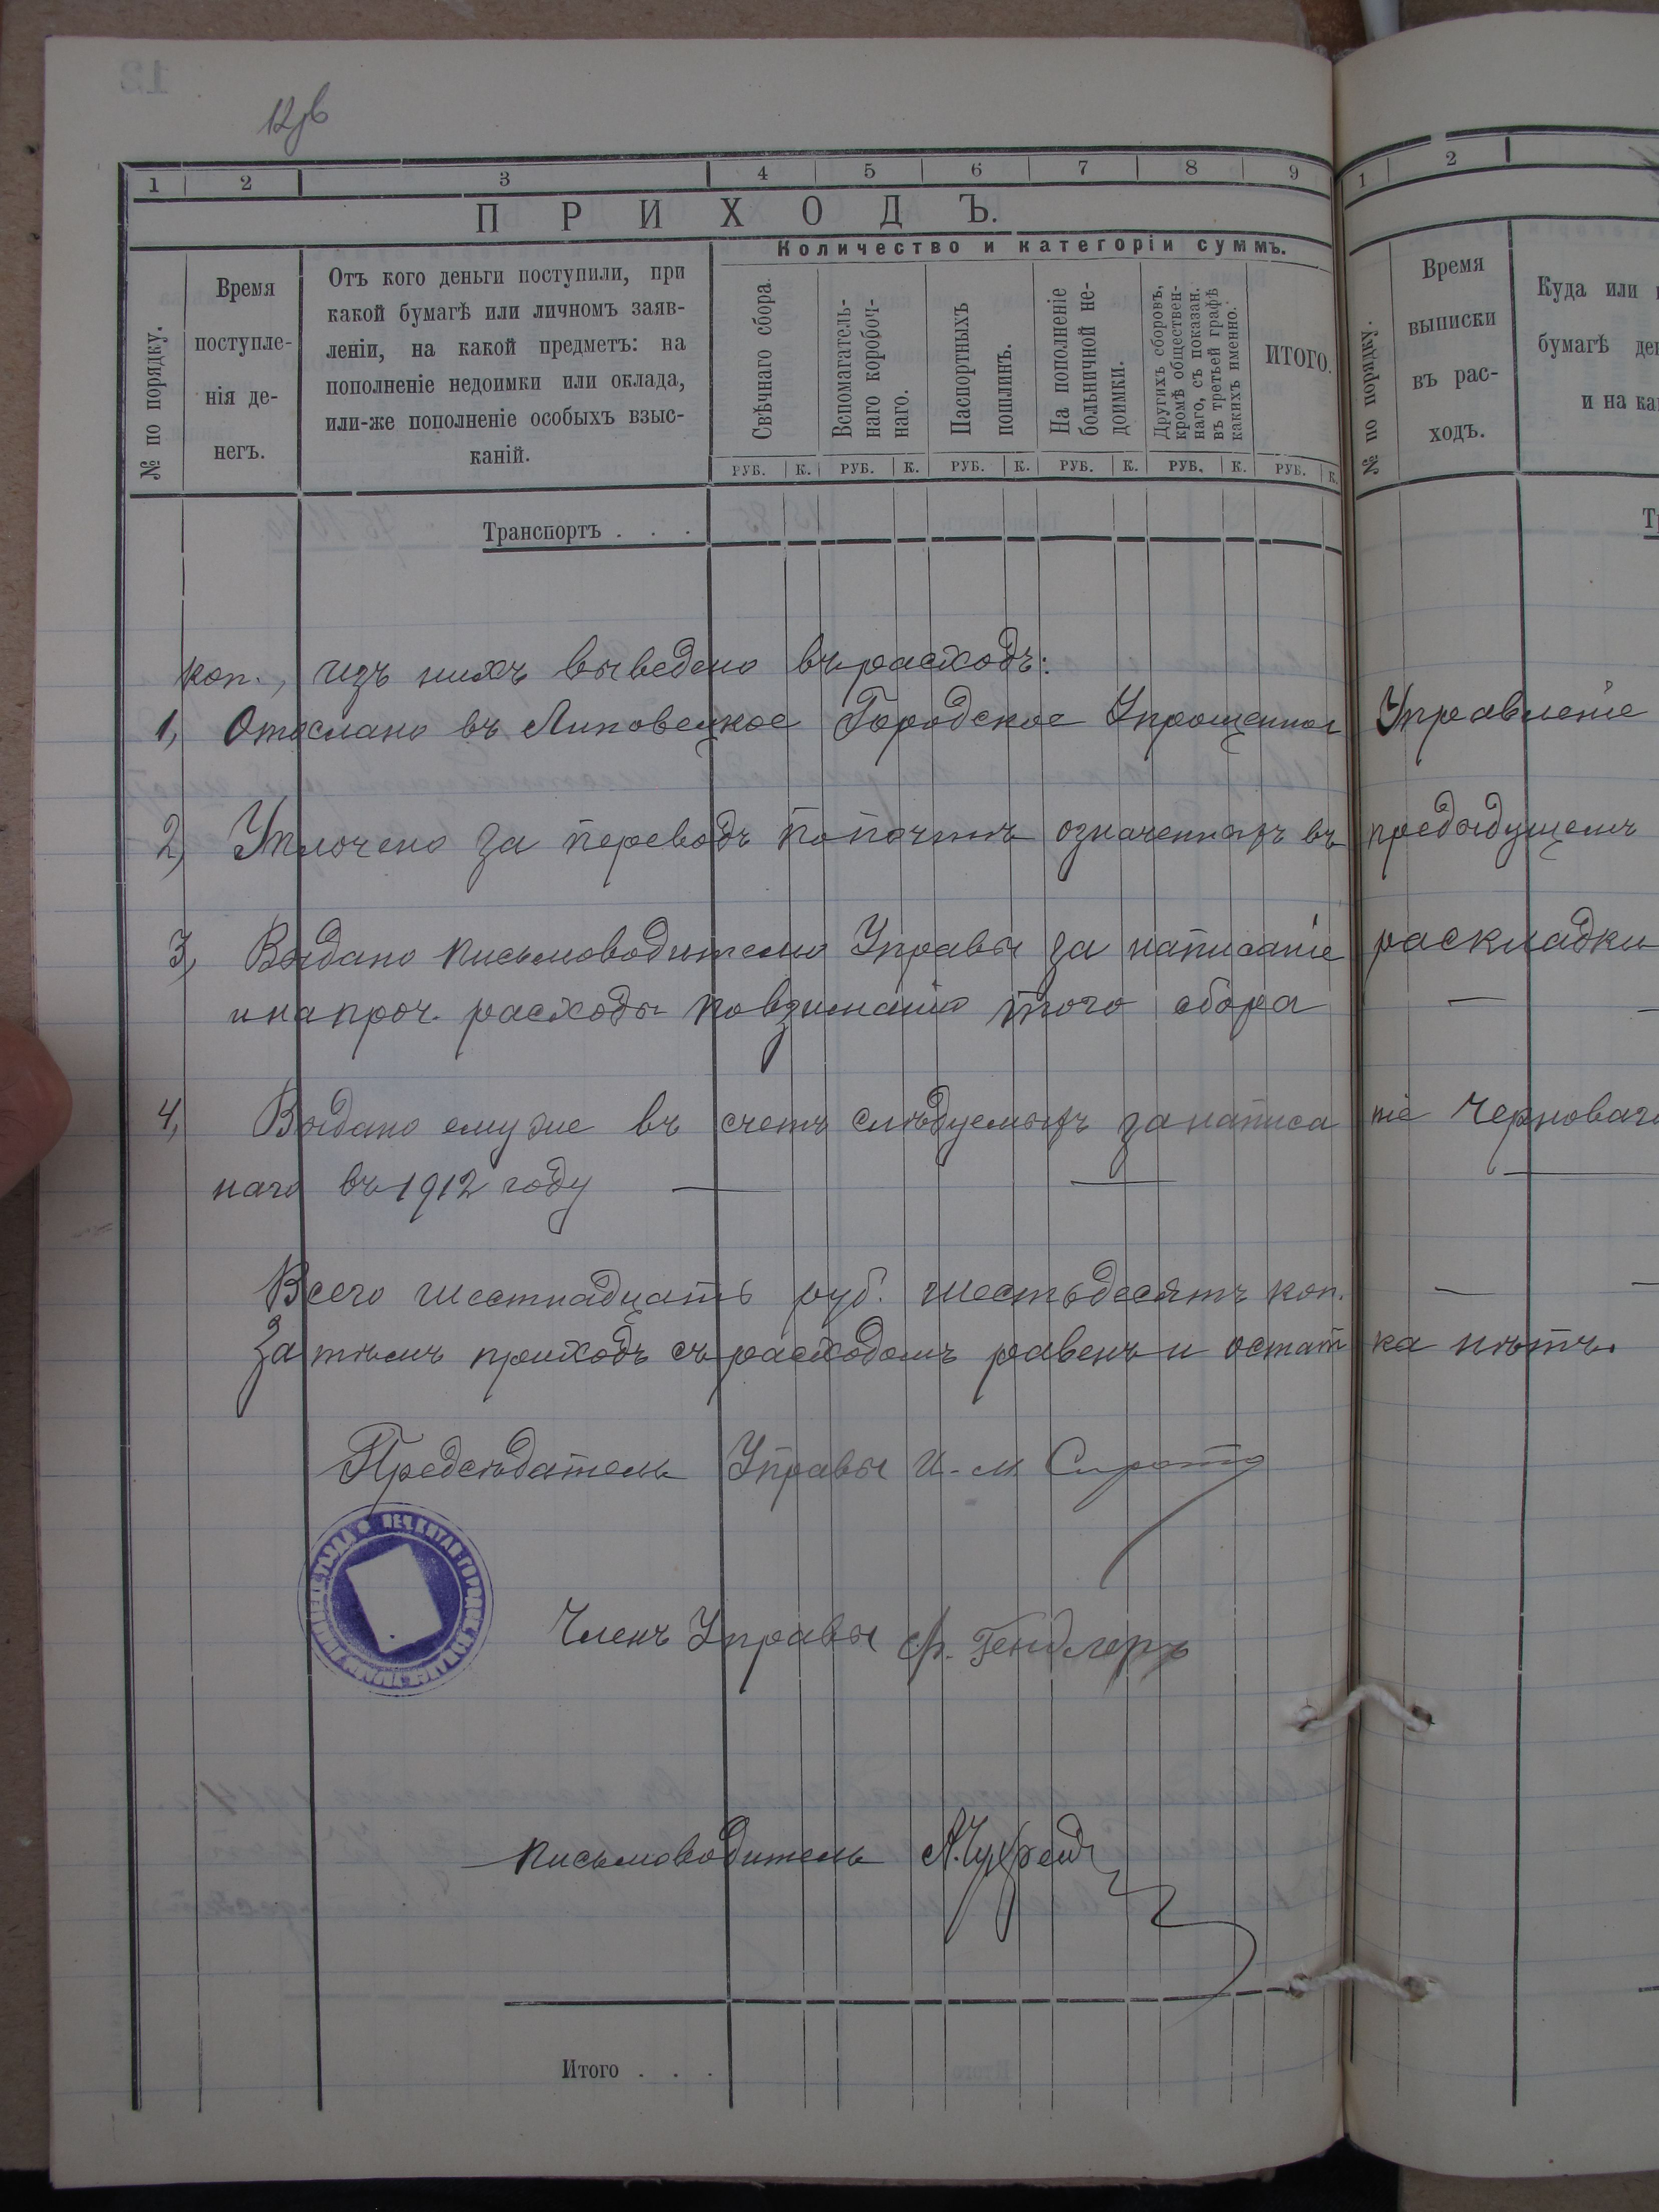 12 об
1 2 3 4 5 6 7 8 9
ПРИХОДЪ.
Количество и категоріи суммъ.
№ по порядку.
Время
поступле-
нія де-
негъ.
Отъ кого деньги поступили, при
какой бумагѣ или личномъ заяв-
леніи, на какой предметъ: на
пополненіе недоимки или оклада,
или-же пополненіе особыхъ взыс-
каній.
Свѣчнаго сбора.
Вспомагатель-
наго коробоч-
наго.
Паспортныхъ
пошлинъ.
На пополненіе
больничной не-
доимки.
Другихъ сборовъ,
кромѣ обществен-
наго, съ показан.
въ третьей графѣ
какихъ именно.
ИТОГО.
РУБ. К. РУБ. К. РУБ. К. РУБ. К. РУБ. К. РУБ. К.
Транспортъ . . .
1 2
№ по порядку.
Время
выписки
въ рас-
ходъ.
Куда или
бумагѣ
и на
коп., изъ нихъ выведено въ расходъ:
1, Отослано въ Липовецкое Городское Упрощенное Управленіе
2, Уплочено за переводъ по почтѣ означенныхъ въ предыдущемъ
3, Выдано письмоводителю Управы за написаніе раскладки
и на проч. расходы по взиманію этого сбора —
4, Выдано ему же въ счетъ слѣдуемыхъ за написаніе черноваго
наго въ 1912 году — — —
Всего шестнадцать руб. шестьдесятъ коп. — —
Затѣмъ приходъ съ расходомъ равенъ и остатка нѣтъ.
Предсѣдатель Управы И-М Сирота
Членъ Управы Гендлеръ
Письмоводитель
Итого . . .